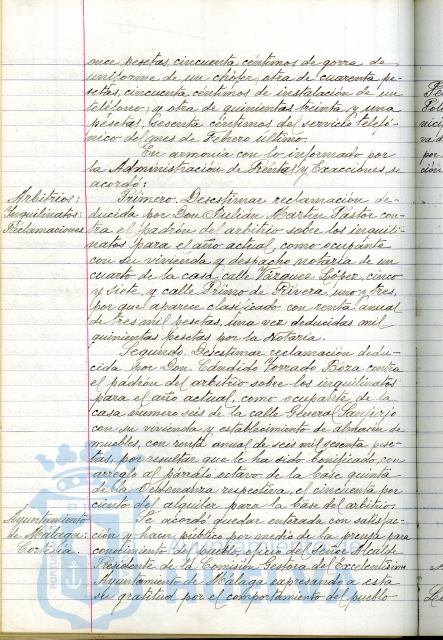 once pesetas, cincuenta céntimos de gorra de
uniforme de un chófer, otra de cuarenta pe-
setas, cincuenta céntimos de instalación de un
teléfono; y otra de quinientas treinta y una
pesetas, sesenta céntimos del servicio telefó-
nico del mes de Febrero último.
En armonía con lo informado por
la Administración de Rentas y Exacciones, se
acordó:
Arbitrios:
Inquilinatos:
Reclamaciones.
Primero. Desestimar reclamación de-
ducida por Don Julián Martín Pastor con-
tra el padrón del arbitrio sobre los inquili-
natos para el año actual, como ocupante
con su vivienda y despacho notaría de un
cuarto de la casa calle Vázquez López, cinco
y siete, y calle Primo de Rivera, uno y tres,
por que aparece clasificado con renta anual
de tres mil pesetas, una vez deducidas mil
quinientas pesetas por la Notaría.
Segundo. Desestimar reclamación dedu-
cida por Don Cándido Torrado Boza contra
el padrón del arbitrio sobre los inquilinatos
para el año actual, como ocupante de la
casa número seis de la calle General Sanjurjo
con su vivienda y establecimiento de almacén de
muebles, con renta anual de seis mil sesenta pese-
tas, por resultar que le ha sido bonificado, con
arreglo al párrafo octavo de la base quinta
de la Ordenanza respectiva, el cincuenta por
ciento del alquiler para la base del arbitrio.
Ayuntamiento
de Málaga:
Cortesía.
Se acordó quedar enterada con satisfac-
ción y hacer público por medio de la prensa para
conocimiento del pueblo, oficio del Señor Alcalde
Presidente de la Comisión Gestora del Excelentísimo
Ayuntamiento de Málaga expresando a esta
su gratitud por el comportamiento del pueblo